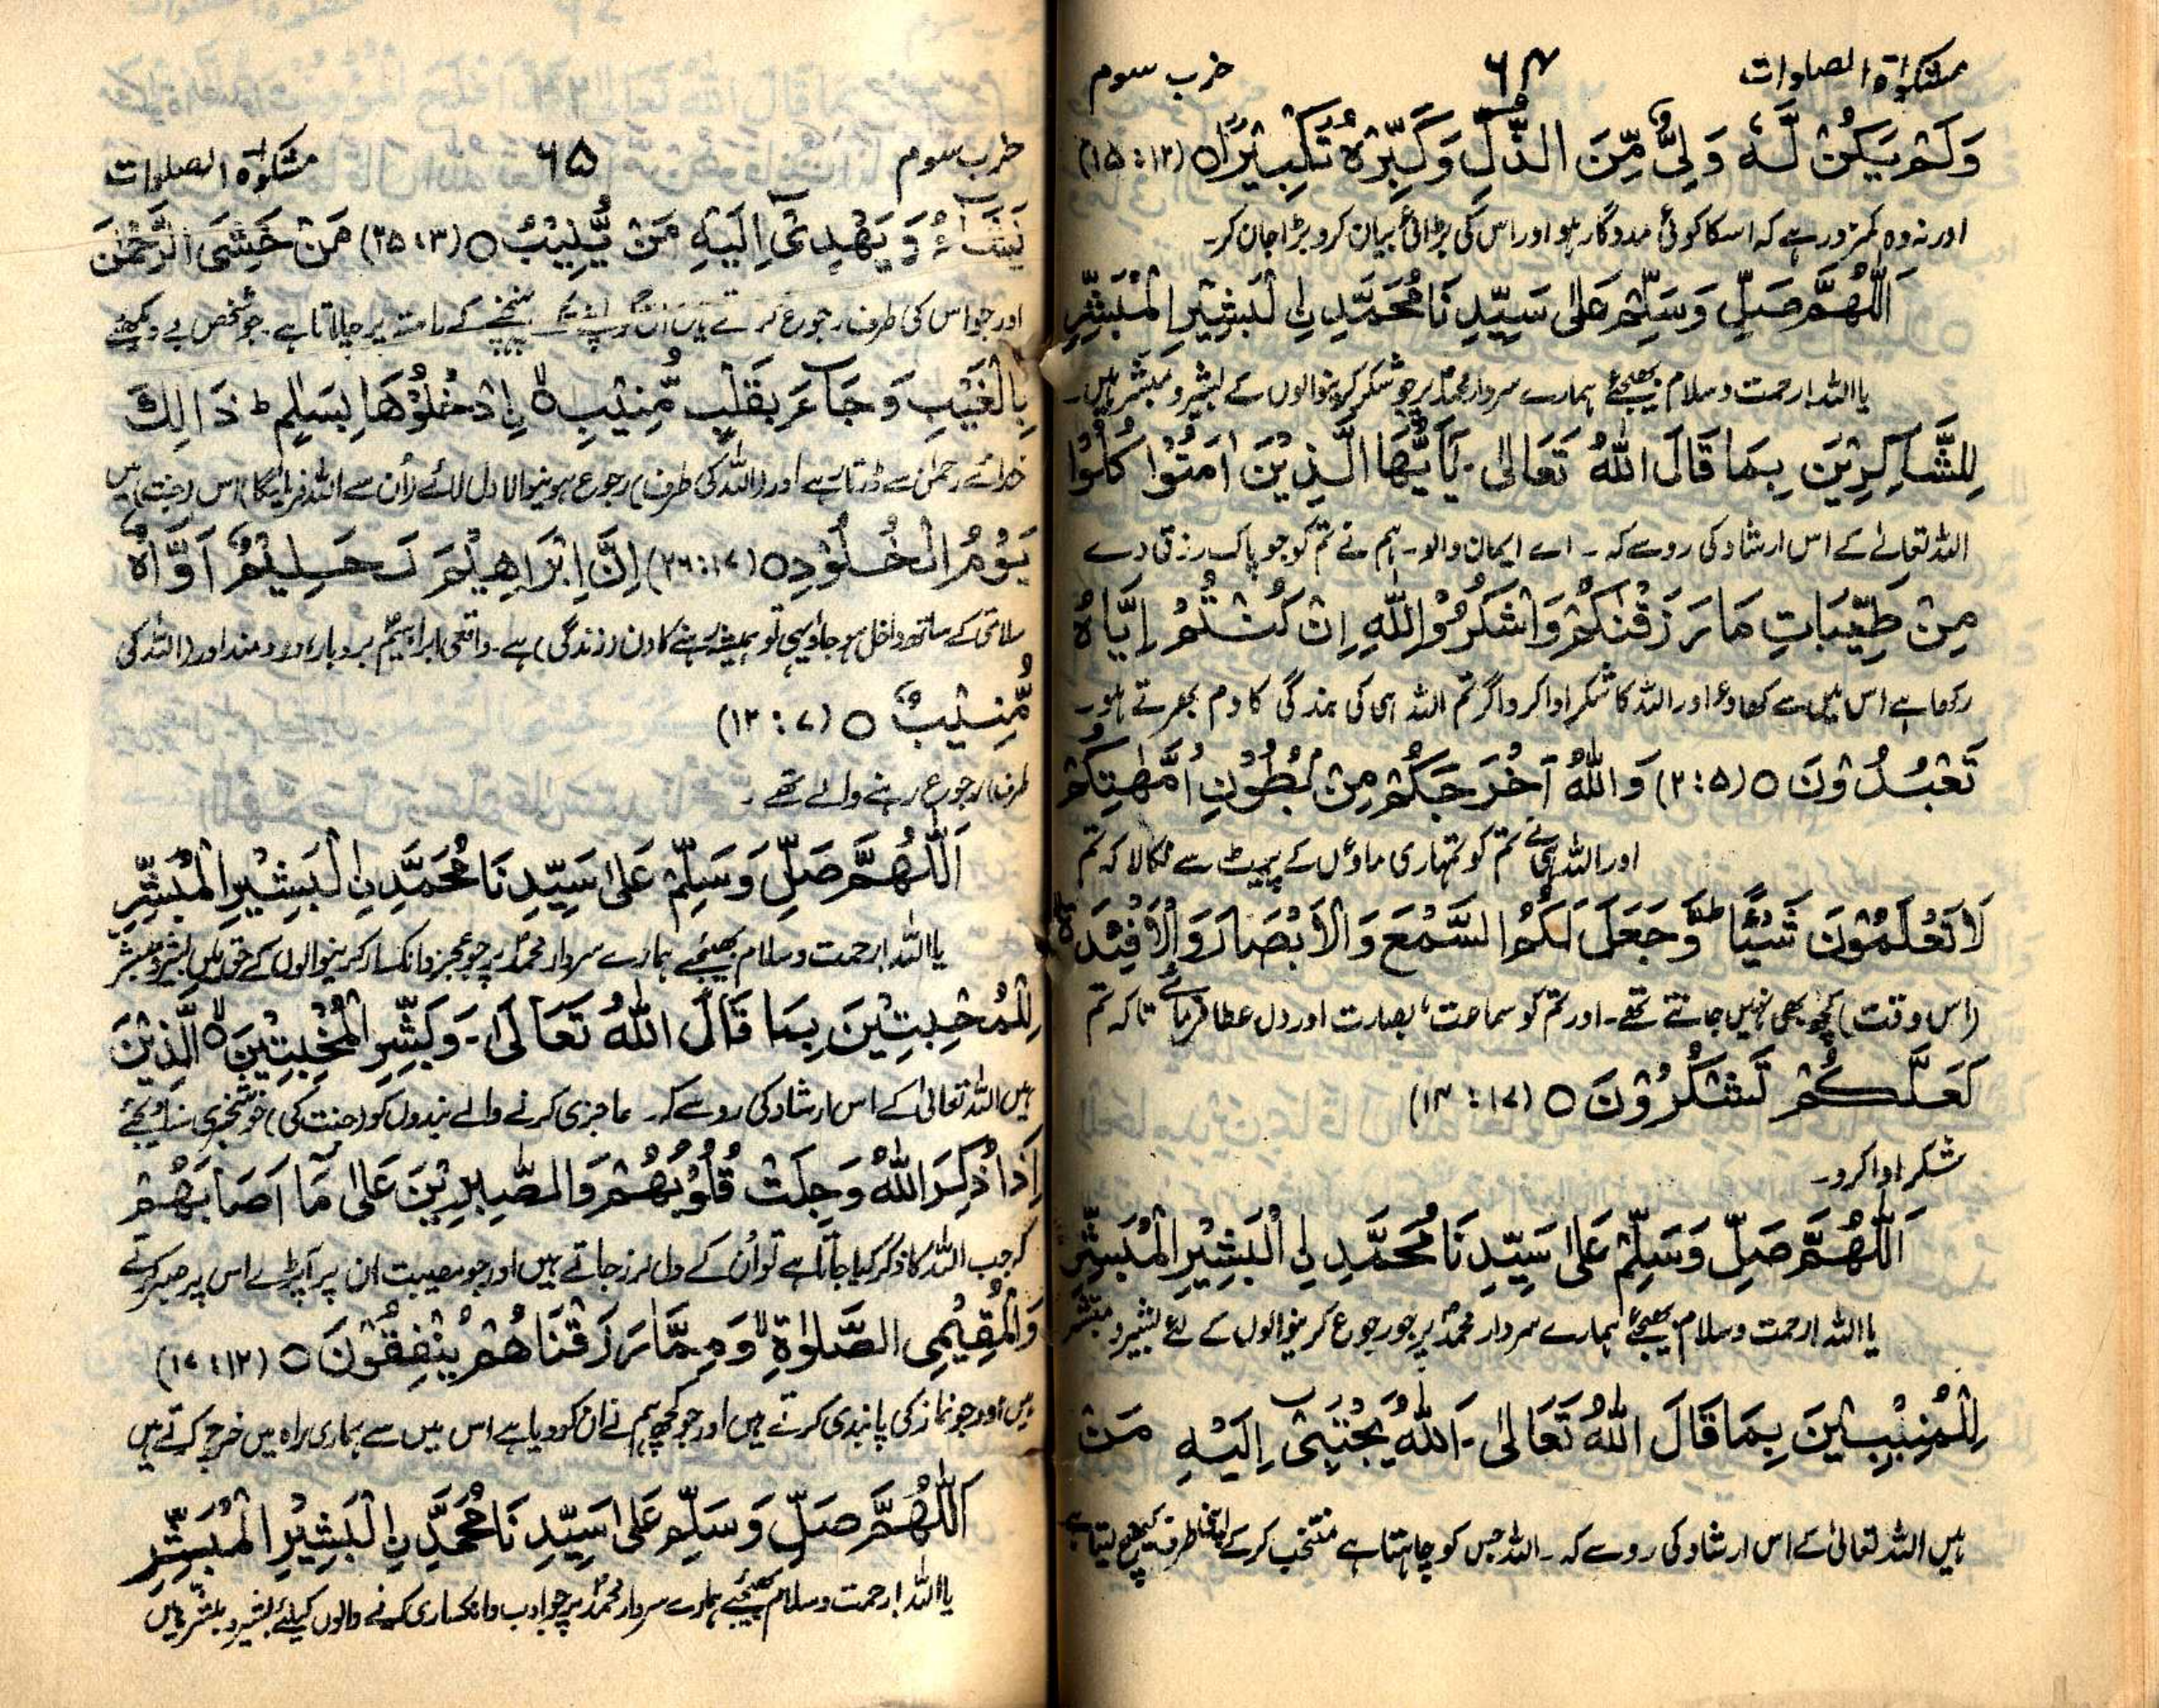 مشکوٰۃ الصلوات ۶۴ حزب سوم
وَلَمْ يَكُنْ لَّهٗ وَلِیٌّ مِّنَ الذُّلِّ وَكَبِّرْهُ تَكْبِيْرًا ○ (۱۵:۱۲)
اور نہ وہ کمزور ہے کہ اسکا کوئی مددگار ہو اور اس کی بڑائی بیان کرو بڑا جان کر۔
اَللّٰهُمَّ صَلِّ وَسَلِّمْ عَلٰی سَيِّدِنَا مُحَمَّدِ نِ لْبَشِيْرِ الْمُبَشِّرِ
یا اللہ! رحمت و سلام بھیجئے ہمارے سردار محمدؐ پر جو شکر کرنیوالوں کے بشیر و مبشر ہیں۔
لِلشَّاكِرِيْنَ بِمَا قَالَ اللّٰهُ تَعَالٰی۔ يٰٓاَيُّهَا الَّذِيْنَ اٰمَنُوْا كُلُوْا
اللہ تعالےٰ کے اس ارشاد کی رو سے کہ۔ اے ایمان والو۔ ہم نے تم کو جو پاک رزق دے
مِنْ طَيِّبَاتِ مَا رَزَقْنٰكُمْ وَاشْكُرُوْا لِلّٰهِ اِنْ كُنْتُمْ اِيَّاهُ
رکھا ہے اس میں سے کھاؤ اور اللہ کا شکر ادا کرو اگر تم اللہ ہی کی بندگی کا دم بھرتے ہو۔
تَعْبُدُوْنَ ○ (۲:۵) وَاللّٰهُ اَخْرَجَكُمْ مِنْ بُطُوْنِ اُمَّهٰتِكُمْ
اور اللہ ہی نے تم کو تمہاری ماؤں کے پیٹ سے نکالا کہ تم
لَا تَعْلَمُوْنَ شَيْئًا وَّجَعَلَ لَكُمُ السَّمْعَ وَالْاَبْصَارَ وَالْاَفْئِدَةَ
(اس وقت) کچھ بھی نہیں جانتے تھے۔ اور تم کو سماعت، بصارت اور دل عطا فرمائے تاکہ تم
لَعَلَّكُمْ تَشْكُرُوْنَ ○ (۱۴:۱۷)
شکر ادا کرو۔
اَللّٰهُمَّ صَلِّ وَسَلِّمْ عَلٰی سَيِّدِنَا مُحَمَّدِ نِ الْبَشِيْرِ الْمُبَشِّرِ
یا اللہ! رحمت و سلام بھیجئے ہمارے سردار محمدؐ پر جو رجوع کرنیوالوں کے لئے بشیر و مبشر
لِلْمُنِيْبِيْنَ بِمَا قَالَ اللّٰهُ تَعَالٰی۔ اَللّٰهُ يَجْتَبِیْ اِلَيْهِ مَنْ
ہیں اللہ تعالیٰ کے اس ارشاد کی رو سے کہ۔ اللہ جس کو چاہتا ہے منتخب کرکے اپنی طرف کھینچ لیتا ہے
حزب سوم ۶۵ مشکوٰۃ الصلوات
يَشَآءُ وَيَهْدِیْ اِلَيْهِ مَنْ يُّنِيْبُ ○ (۲۵:۳) مَنْ خَشِیَ الرَّحْمٰنَ
اور جو اس کی طرف رجوع کرتے ہیں ان کو اپنے تک پہنچنے کے راستہ پر چلاتا ہے۔ جو شخص بے دیکھے
بِالْغَيْبِ وَجَآءَ بِقَلْبٍ مُّنِيْبِ ۙ نِ ادْخُلُوْهَا بِسَلٰمٍ ط ذَالِكَ
خدائے رحمٰن سے ڈرتا ہے اور (اللہ کی طرف) رجوع ہونیوالا دل لائے (اُن سے اللہ فرمائیگا) اس (جنت) میں
يَوْمُ الْخُلُوْدِ ○ (۲۶:۱۷) اِنَّ اِبْرَاهِيْمَ لَحَلِيْمٌ اَوَّاهٌ
سلامتی کے ساتھ داخل ہو جاؤ یہی تو ہمیشہ رہنے کا دن (زندگی) ہے۔ واقعی ابراہیمؑ بردبار، دردمند اور (اللہ کی
مُّنِيْبٌ ○ (۱۲:۷)
طرف) رجوع رہنے والے تھے۔
اَللّٰهُمَّ صَلِّ وَسَلِّمْ عَلٰی سَيِّدِنَا مُحَمَّدِ نِ لْبَشِيْرِ الْمُبَشِّرِ
یا اللہ! رحمت و سلام بھیجئے ہمارے سردار محمدؐ پر جو عجز و انکسار کرنیوالوں کے حق میں بشیر و مبشر
لِلْمُخْبِتِيْنَ بِمَا قَالَ اللّٰهُ تَعَالٰی۔ وَبَشِّرِ الْمُخْبِتِيْنَ ۙ الَّذِيْنَ
ہیں اللہ تعالیٰ کے اس ارشاد کی رو سے کہ۔ عاجزی کرنے والے بندوں کو (جنت کی) خوشخبری سنا دیجئے
اِذَا ذُكِرَ اللّٰهُ وَجِلَتْ قُلُوْبُهُمْ وَالصّٰبِرِيْنَ عَلٰی مَآ اَصَابَهُمْ
کہ جب اللہ کا ذکر کیا جاتا ہے تو اُن کے دل لرز جاتے ہیں اور جو مصیبت ان پر آپڑے اس پر صبر کرتے
وَالْمُقِيْمِی الصَّلٰوةِ ۙ وَمِمَّا رَزَقْنَاهُمْ يُنْفِقُوْنَ ○ (۱۷:۱۲)
ہیں اور جو نماز کی پابندی کرتے ہیں اور جو کچھ ہم نے ان کو دیا ہے اس میں سے ہماری راہ میں خرچ کرتے ہیں
اَللّٰهُمَّ صَلِّ وَسَلِّمْ عَلٰی سَيِّدِنَا مُحَمَّدِ نِ الْبَشِيْرِ الْمُبَشِّرِ
یا اللہ! رحمت و سلام بھیجئے ہمارے سردار محمدؐ پر جو ادب و انکساری کرنے والوں کیلئے بشیر و مبشر ہیں